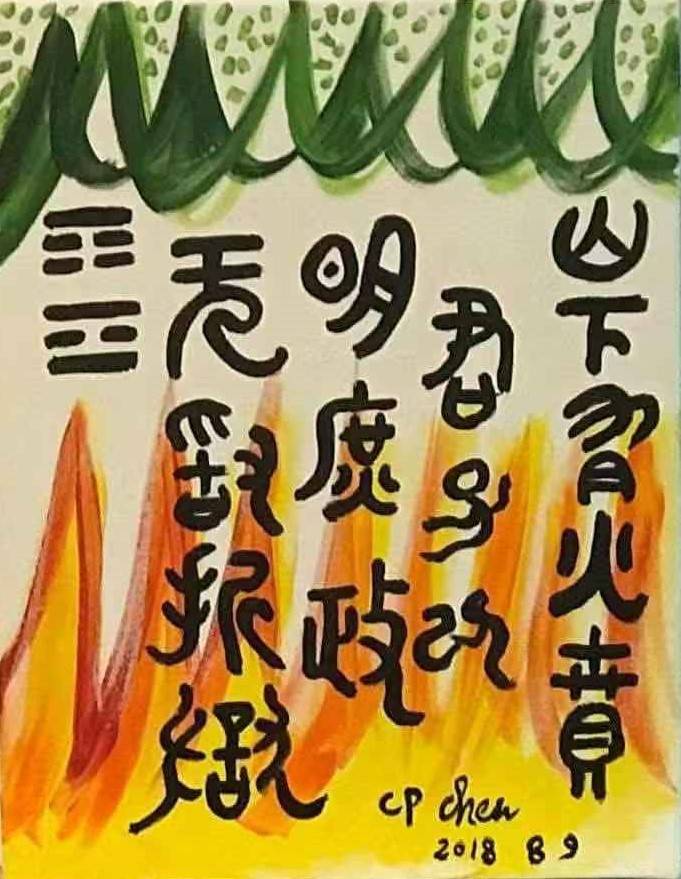 山下有火賁
君子以
明庶政
无敢折獄
䷕
CP Chen
2018 8 9